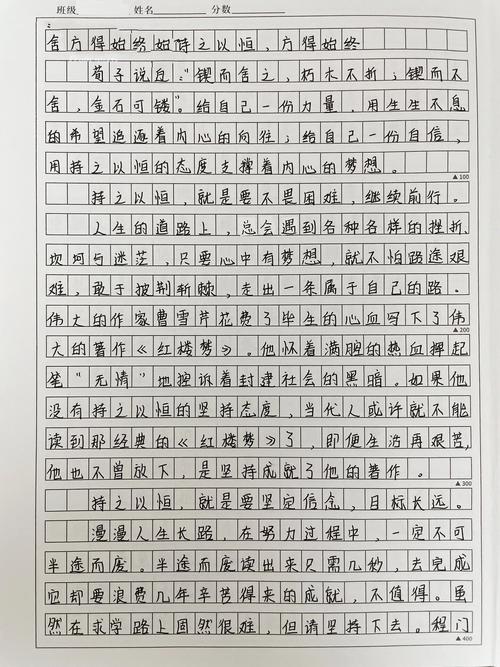 班级 姓名 分数
舍方得始终始持之以恒，方得始终
荀子说过："锲而舍之，朽木不折；锲而不
舍，金石可镂"。给自己一份力量，用生生不息
的希望追逐着内心的向往；给自己一份自信，
用持之以恒的态度支撑着内心的梦想。
▲100
持之以恒，就是要不畏困难，继续前行。
人生的道路上，总会遇到各种各样的挫折、
坎坷与迷茫，只要心中有梦想，就不怕路途艰
难，敢于披荆斩棘，走出一条属于自己的路。
伟大的作家曹雪芹花费了毕生的心血写下了伟
▲200
大的著作《红楼梦》。他怀着满腔的热血挥起
笔"无情"地控诉着封建社会的黑暗。如果他
没有持之以恒的坚持态度，当代人或许就不能
读到那经典的《红楼梦》了，即便生活再艰苦，
他也不曾放下，是坚持成就了他的著作。
▲300
持之以恒，就是要坚定信念，目标长远。
漫漫人生长路，在努力过程中，一定不可
半途而废。半途而废读出来只需几秒，去完成
它却要浪费几年辛苦得来的成就，不值得。虽
然在求学路上固然很难，但请坚持下去。程门
▲400